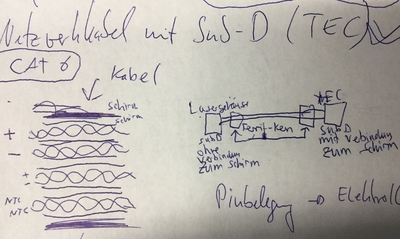 Netzwerkkabel mit SuS-D (TEC)
CAT 6
Kabel
Schirm
Schirm
+
-
+
-
NTC
NTC
Lasergehäuse
TEC
SubD
ohne
Verbindung
zum Schirm
Ferrit-Kern
SubD
mit Verbindung
zum Schirm
Pinbelegung →